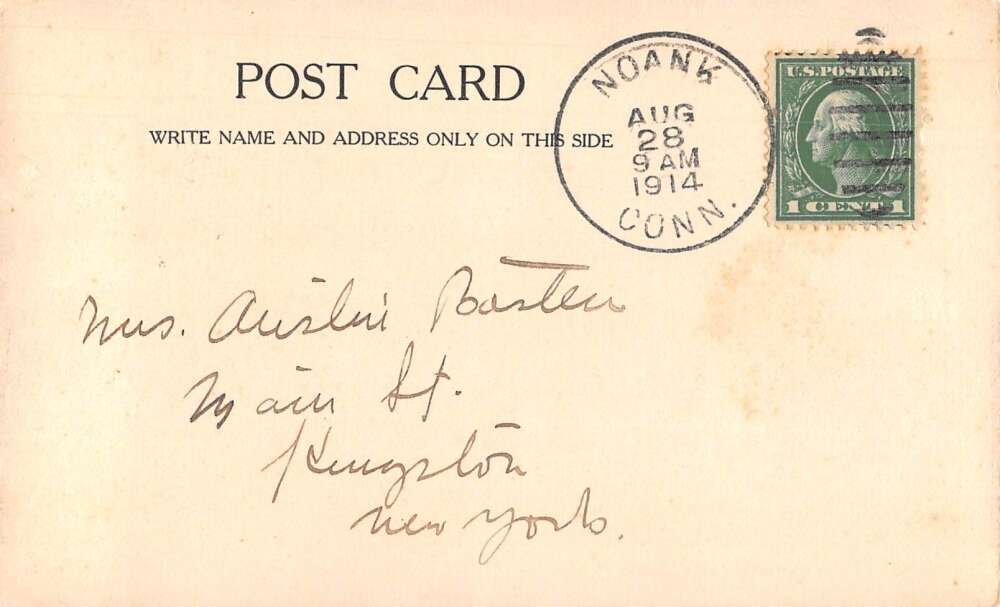 POST CARD
WRITE NAME AND ADDRESS ONLY ON THIS SIDE
NOANK
AUG
28
9 AM
1914
CONN.
U.S. POSTAGE
1 CENT 1
Mrs. Austin Basten
Main St.
Kingston
New York.